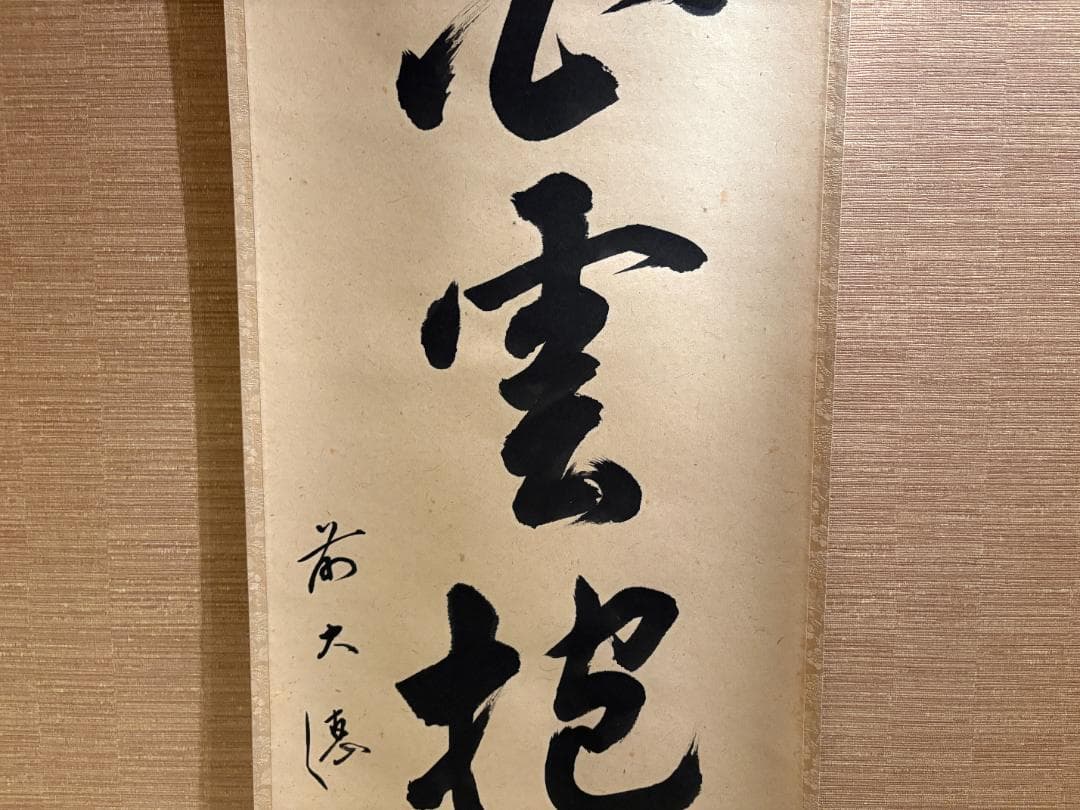 雲抱
前大徳